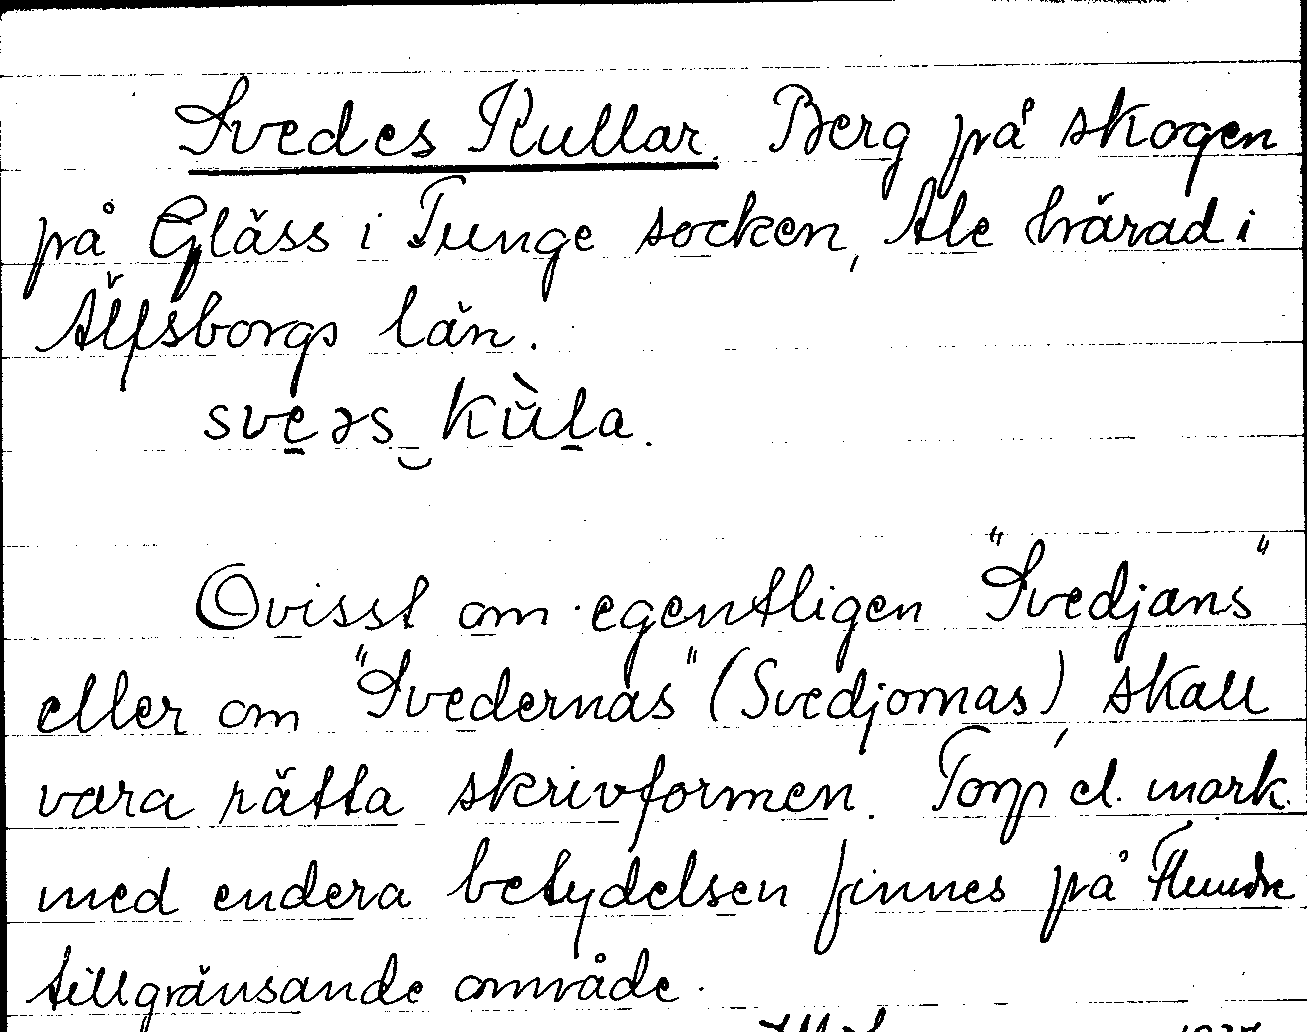 Svedes Kullar. Berg på skogen
på Gläss i Tunge socken, Ale härad i
Älfsborgs län.
svēəs‿kùl̠a.
Ovisst om egentligen "Svedjans"
eller om "Svedernas" (Svedjornas), skall
vara rätta skrivformen. Torp el. mark
med endera betydelsen finnes på Flundre
tillgränsande område.